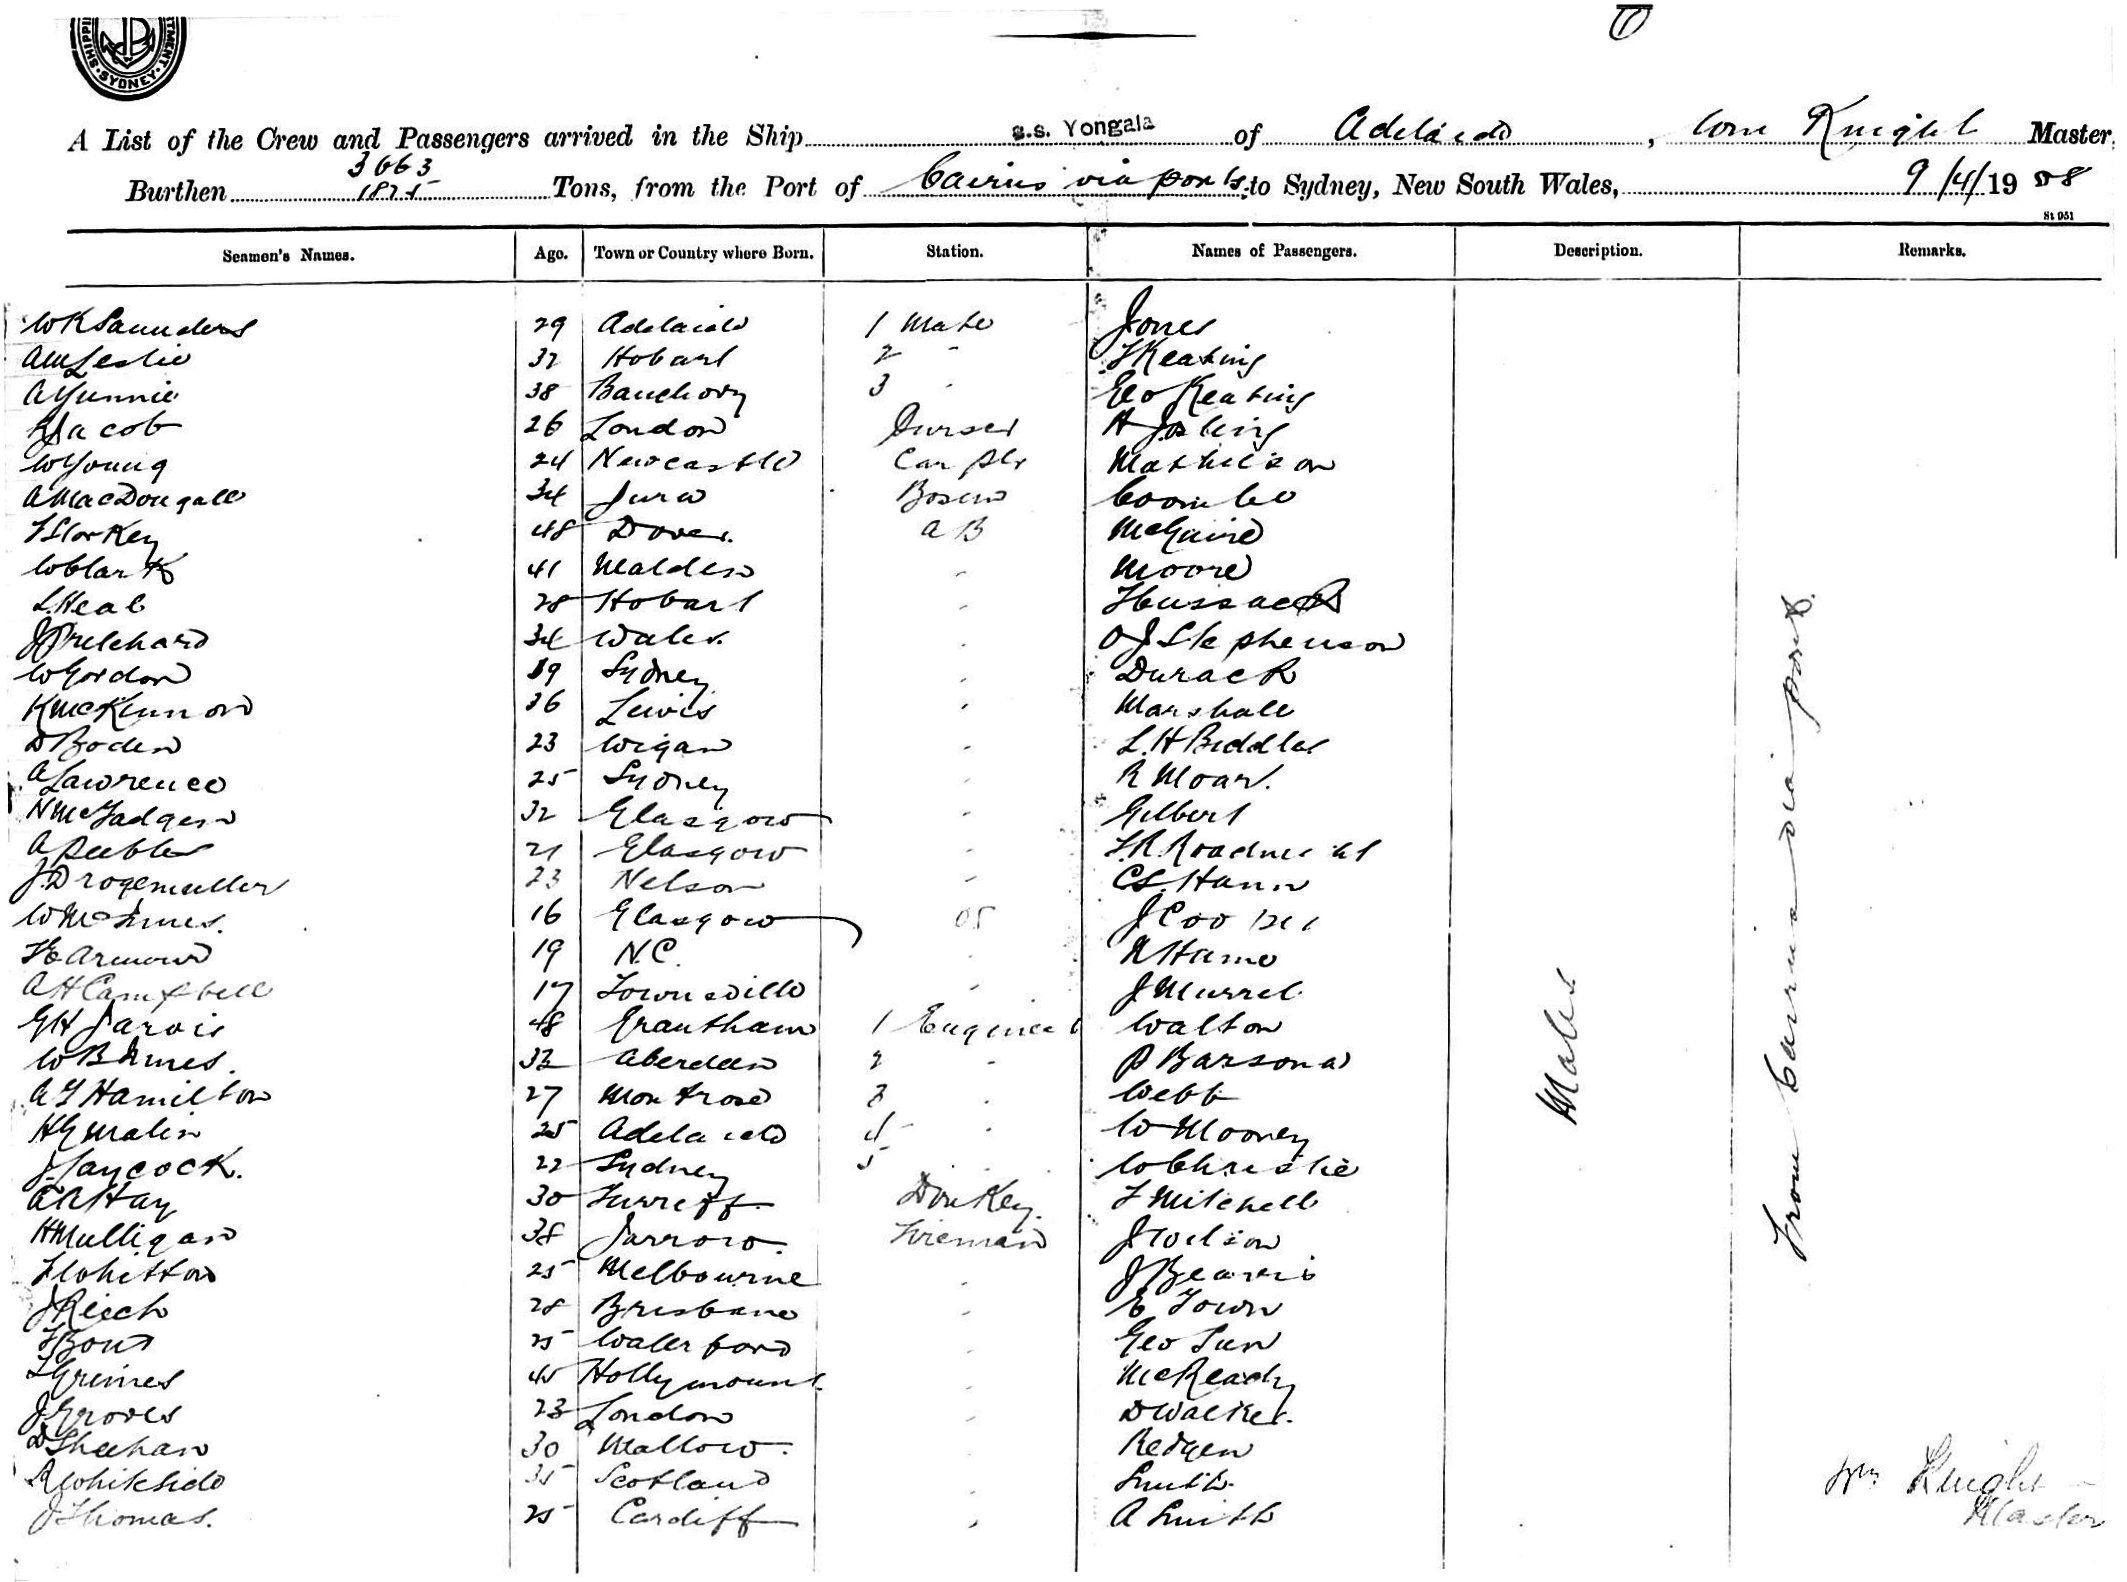 SYDNEY
A List of the Crew and Passengers arrived in the Ship s.s. Yongala of Adelaide, Wm Knight Master,
3663
Burthen 1825 Tons, from the Port of Cairns via ports to Sydney, New South Wales, 9/4/1908
St 951
Seamen's Names. Age. Town or Country where Born. Station. Names of Passengers. Description. Remarks.
W K Saunders 29 Adelaide 1 Mate Jones
AM Leslie 32 Hobart 2 - F Keating
A Yunnie 38 Banchory 3 - Geo Keating
Jacob 26 London Purser H Josling
W Young 24 Newcastle Carptr Mathieson
A MacDougall 34 Jura Bosun Coombe
F Storkey 48 Dover. A B McGuire
W Clark 41 Malden - Moore
L Heal 28 Hobart - 
J Pritchard 34 Wales. - O J Stephenson
W Gordon 39 Sydney - Durack
K McKinnon 36 Lewis - Marshall
D Boden 23 Wigan - L. H Biddles
A Lawrence 25 Sydney - R Moar.
N McFadgen 32 Glasgow - Gilbert
A Peebles 21 Glasgow - F. R. Roadnight
J. Drogemuller 23 Nelson - C S. Hann
W McInnes. 16 Glasgow OS J Cooper
F E Armour 19 N.C. - N Hame
A H Campbell 17 Townsville - J Murrel
G H Jarvis 48 Grantham 1 Engineer Walton
W B Innes. 32 Aberdeen 2 - P Barsona
A F Hamilton 27 Montrose 3 - Webb
H G Malin 25 Adelaide 4 - W Mooney
J. Laycock. 22 Sydney 5 - W Christie
A A Hay 30 Turriff Donkey. F Mitchell
H Mulligan 38 Jarrow. Fireman J Wilson
F Whitton 25 Melbourne - J Bearis
J Reich 28 Brisbane - E Town
F Bout 25 Waterford - Geo Sun
Grimes 45 Hollymount - McReady
J Groves 23 London - D Walker.
D Sheehan 30 Mallow. - Redgen
R Whiteside 35 Scotland - Smith
J Thomas. 25 Cardiff - A Smith
Males
From Cairns via ports.
Wm Knight
Master